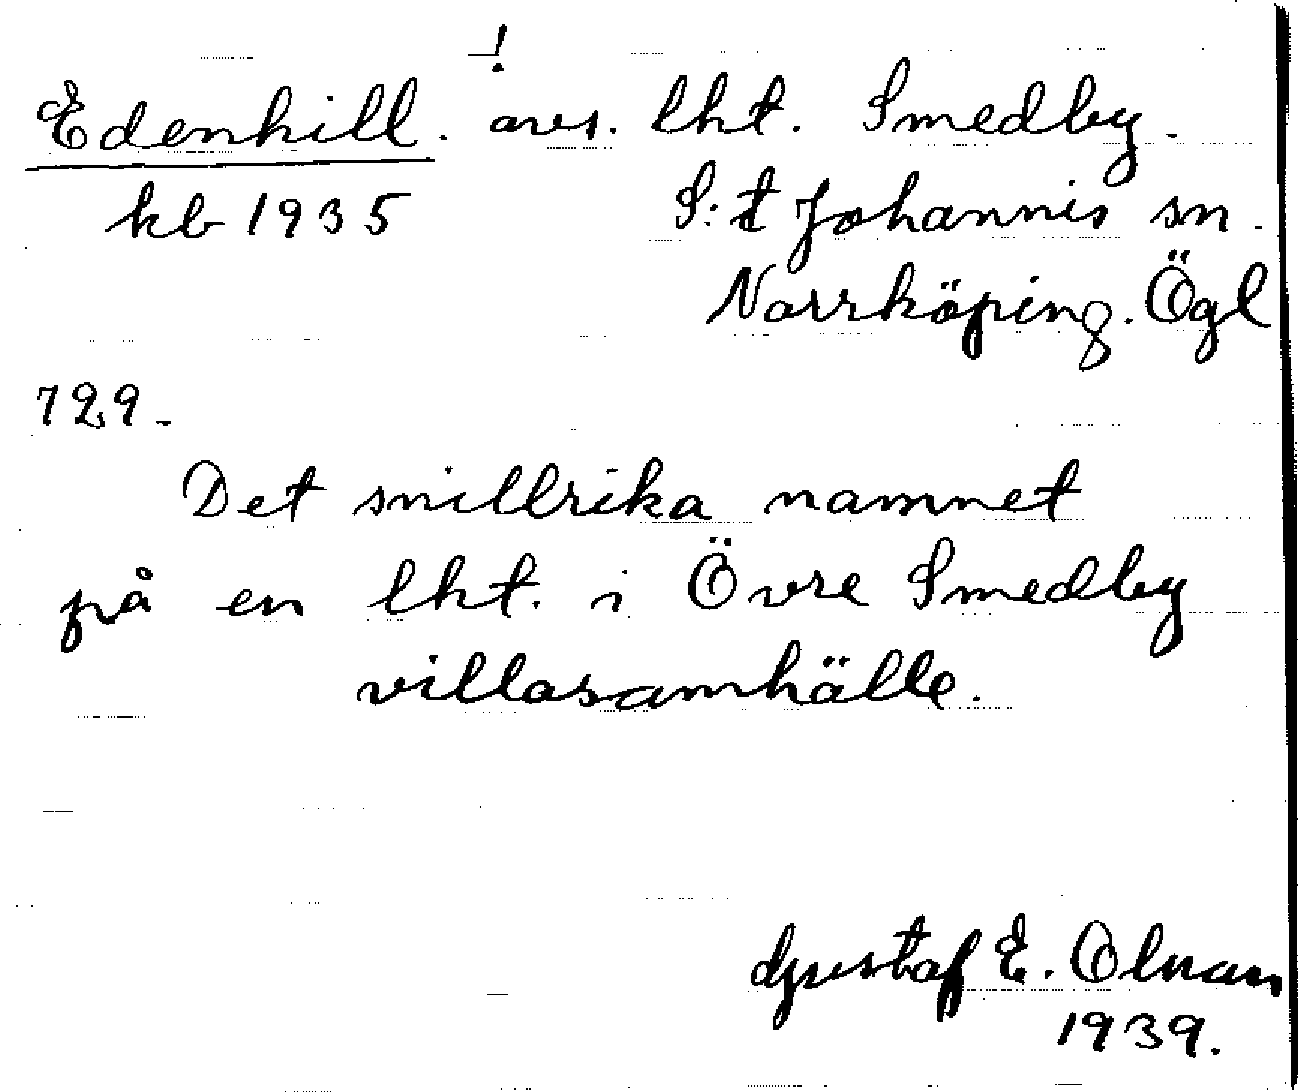 !
Edenhill. avs. lht. Smedby.
kb 1935 S:t Johannis sn.
Norrköping. Ögl
729.
Det snillrika namnet
på en lht. i Övre Smedby
villasamhälle.
Gustaf E. Olman
1939.